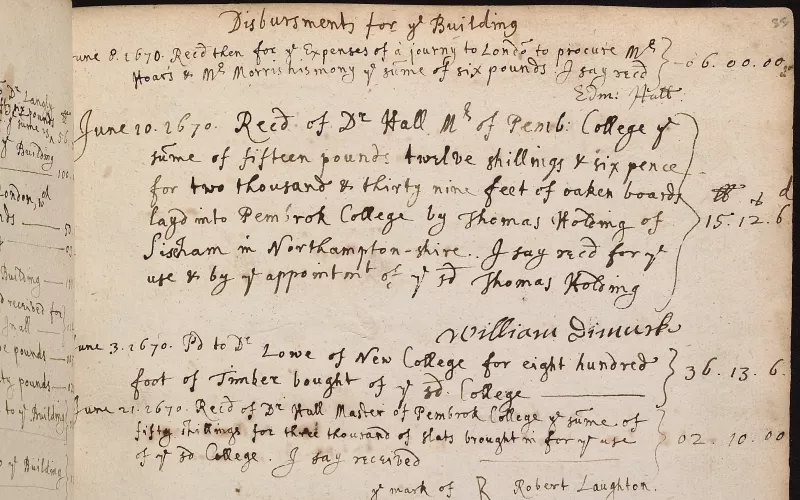 35
Disbursments for yͤ Building
June 8. 1670. Recd then for yͤ Expenses of a journy to London to procure Mʳ
Hoars & Mʳ Morris his mony yͤ sume of six pounds I say recd 06. 00. 00
Edm: Hall.
June 10. 1670. Recd. of Dʳ Hall Mʳ of Pemb: College yͤ
sume of fifteen pounds twelve shillings & six pence
for two thousand & thirty nine feet of oaken boards
layd into Pembrok College by Thomas Holding of 15. 12. 6
Sisham in Northampton-shire. I say recd for yͤ
use & by yͤ appointmᵗ of yͤ sd Thomas Holding
William Dimark
June 3. 1670. Pd to Dʳ Lowe of New College for eight hundred
foot of Timber bought of yͤ sd. College 36. 13. 6.
June 21. 1670. Recd of Dʳ Hall Master of Pembrok College yͤ sume of
fifty shillings for three thousand of slats brought in for yͤ use 02. 10. 00
of yͤ sd College. I say received
yͤ mark of R Robert Laughton.
Dʳ Langly
yͤ Building
London,
Building
received for
small
pounds
pounds
to yͤ Building
yͤ Building